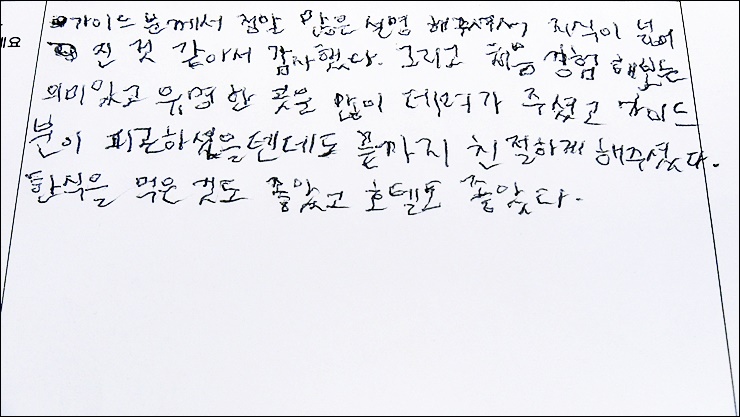 가이드 분께서 정말 많은 설명 해주셔서, 지식이 넓어
진 것 같아서 감사했다. 그리고 처음 경험 해보는
의미있고 유명한 곳을 많이 데려가 주셨고 가이드
분이 피곤하셨을텐데도 끝까지 친절하게 해주셨다.
한식을 먹은 것도 좋았고 호텔도 좋았다.